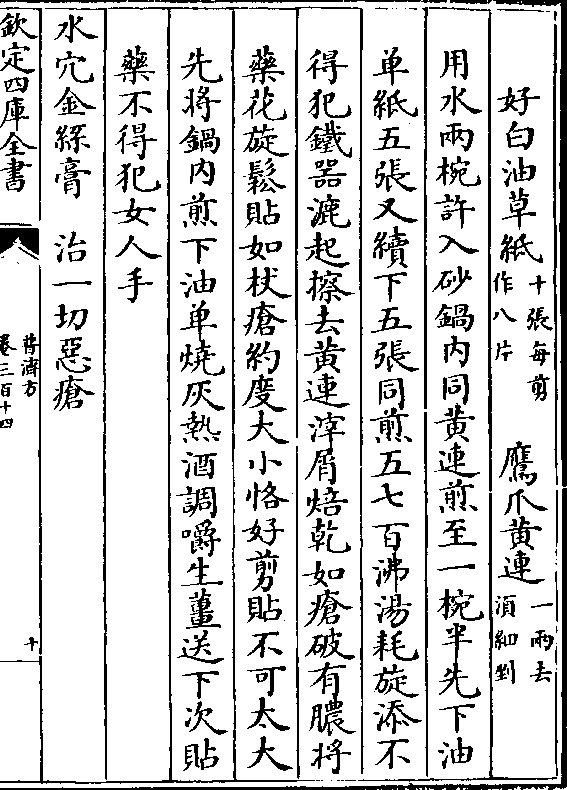 好白油草紙十張每剪作八片　鷹爪黄連一兩去須細剉
用水兩椀許入砂鍋内同黄連煎至一椀半先下油
单紙五張又續下五張同煎五七百沸湯耗旋添不
得犯鐵器漉起擦去黄連滓屑焙乾如瘡破有膿將
藥花旋鬆貼如杖瘡約度大小恰好剪貼不可太大
先將鍋内煎下油单燒灰熱酒調嚼生薑送下次貼
藥不得犯女人手
水穴金絲膏　治一切惡瘡
欽定四庫全書
普濟方
卷三百十四
十